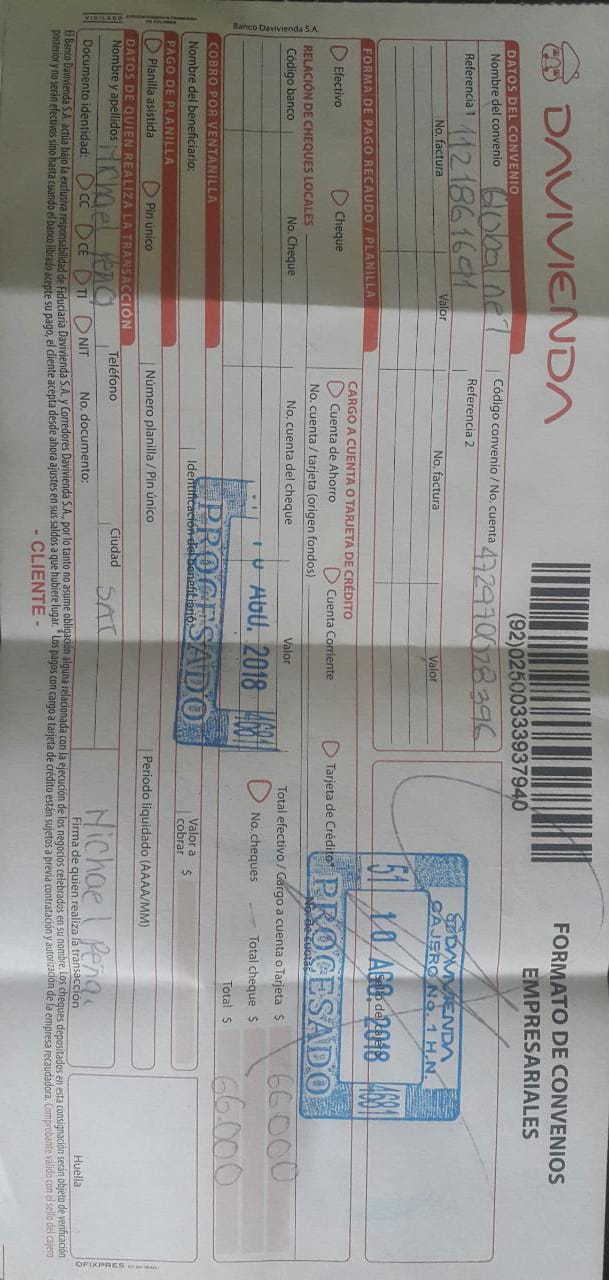 DAVIVIENDA
FORMATO DE CONVENIOS
EMPRESARIALES
(92)02500333937940
DATOS DEL CONVENIO
Nombre del convenio Global net
Código convenio / No. cuenta
Referencia 1 1121861601
Referencia 2
No. factura Valor No. factura Valor
FORMA DE PAGO RECAUDO / PLANILLA
CARGO A CUENTA O TARJETA DE CRÉDITO
Efectivo Cheque Cuenta de Ahorro Cuenta Corriente Tarjeta de Crédito*
No. cuenta / tarjeta (origen fondos)
No. de cuotas
DAVIVIENDA
CAJERO No. 1 H.N.
51 10 AGO. 2018 4681
PROCESADO
RELACIÓN DE CHEQUES LOCALES
Código banco No. Cheque No. cuenta del cheque Valor
Total efectivo / Cargo a cuenta o Tarjeta $ 66000
No. cheques Total cheque $
Total $ 66.000
10 AGO. 2018 4681
PROCESADO
COBRO POR VENTANILLA
Nombre del beneficiario:
Identificación del beneficiario:
Valor a cobrar $
PAGO DE PLANILLA
Planilla asistida Pin único Número planilla / Pin único Periodo liquidado (AAAA/MM)
DATOS DE QUIEN REALIZA LA TRANSACCIÓN
Nombre y apellidos Michael Peña Teléfono Ciudad
Michael Peña
Firma de quien realiza la transacción
Huella
Documento identidad: CC CE TI NIT No. documento:
El Banco Davivienda S.A. actúa bajo la exclusiva responsabilidad de Fiduciaria Davivienda S.A. y Corredores Davivienda S.A., por lo tanto no asume obligación alguna relacionada con la ejecución de los negocios celebrados en su nombre. Los cheques depositados en esta consignación serán objeto de verificación
posterior y no serán efectivos sino hasta cuando el banco librado acepte su pago, el cliente acepta desde ahora ajustes en sus saldos a que hubiere lugar. *Los pagos con cargo a tarjeta de crédito están sujetos a previa contratación y autorización de la empresa recaudadora. Comprobante válido con el sello del cajero
- CLIENTE -
Banco Davivienda S.A.
VIGILADO SUPERINTENDENCIA FINANCIERA DE COLOMBIA
OFIXPRES